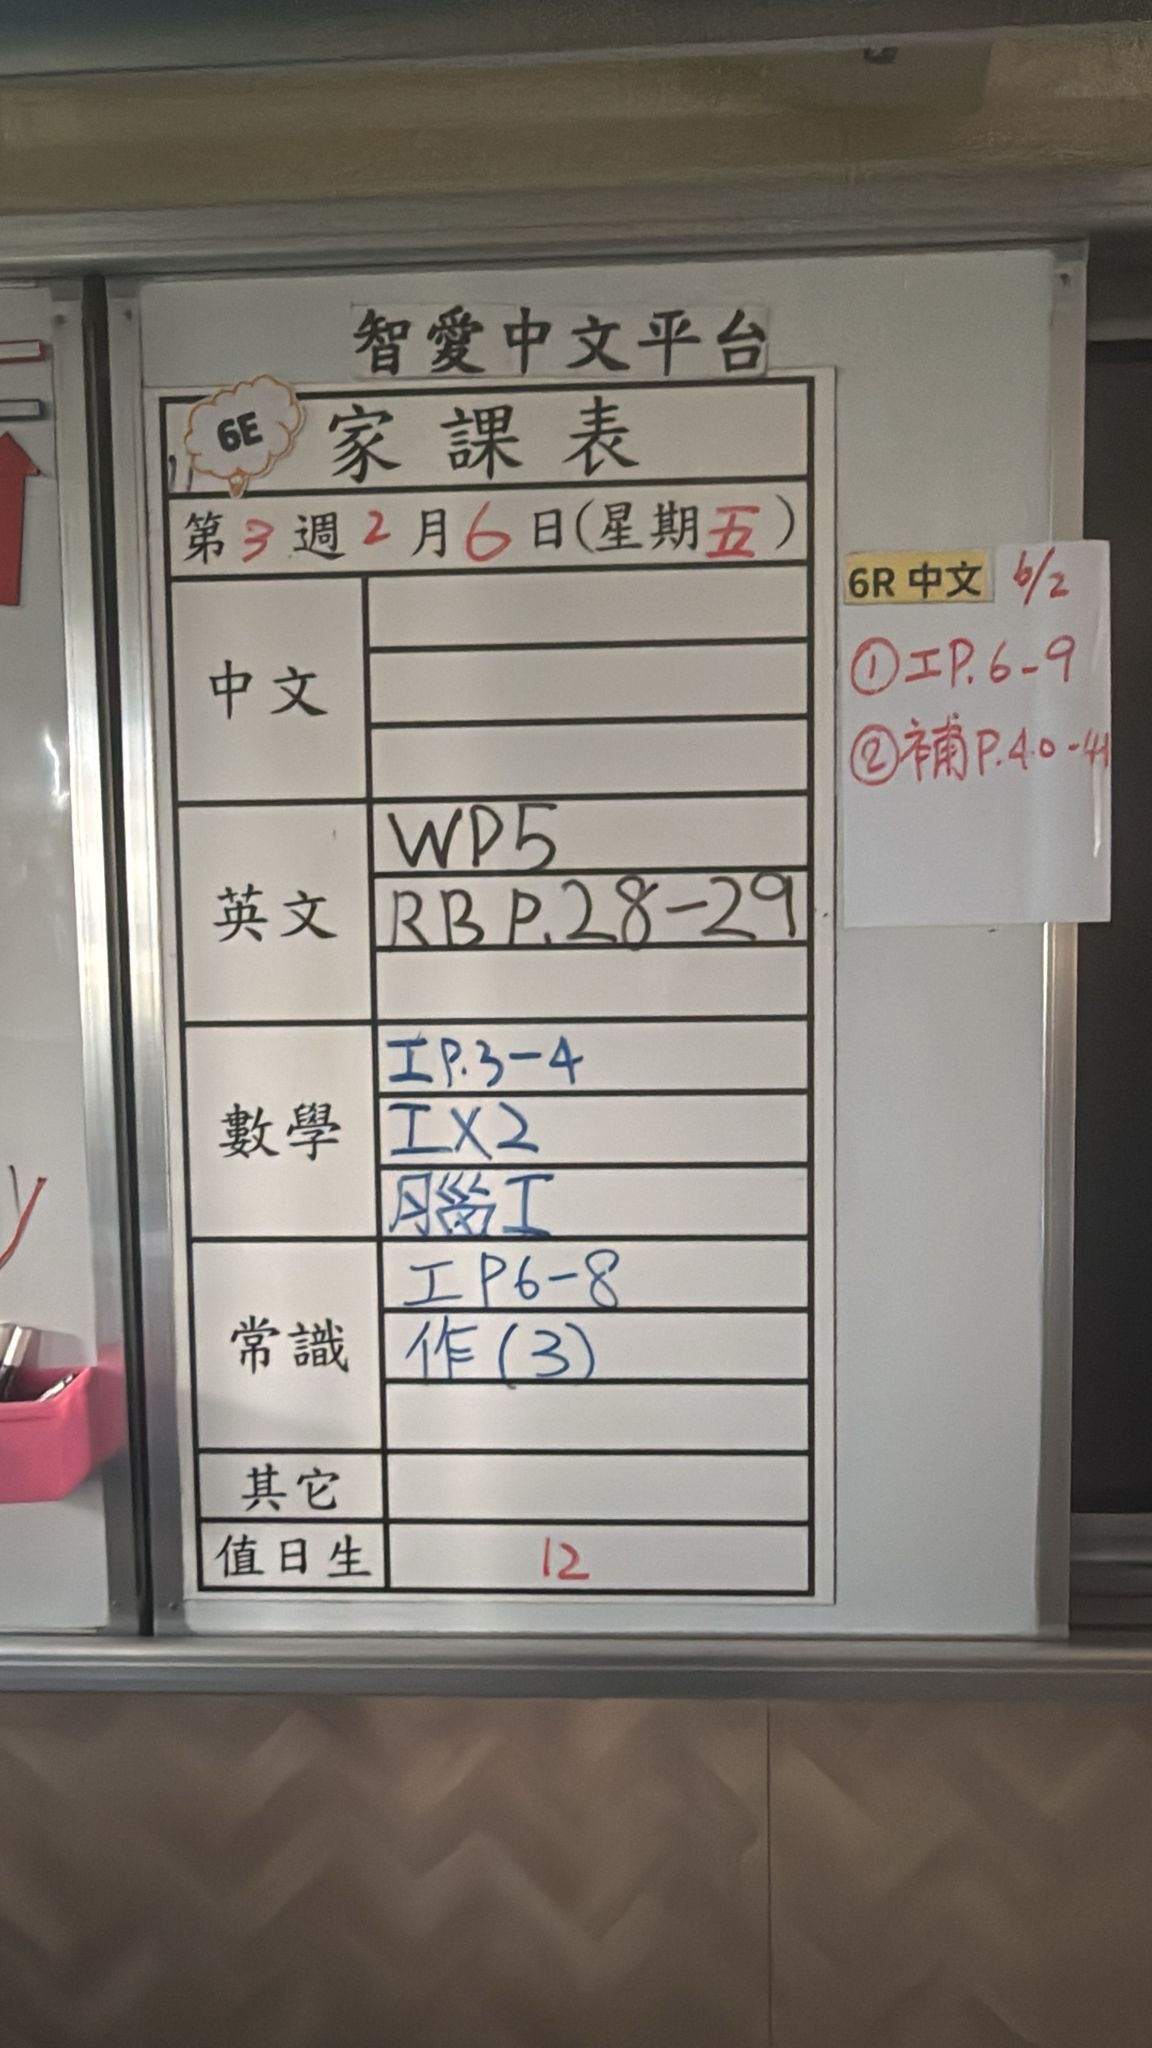 智愛中文平台
6E
家課表
第3週2月6日(星期五)
中文
英文
WP5
RB P.28-29
數學
工P.3-4
工X2
腦工
常識
工P6-8
作(3)
其它
值日生
12
6R 中文 6/2
①工P.6-9
②補P.40-41